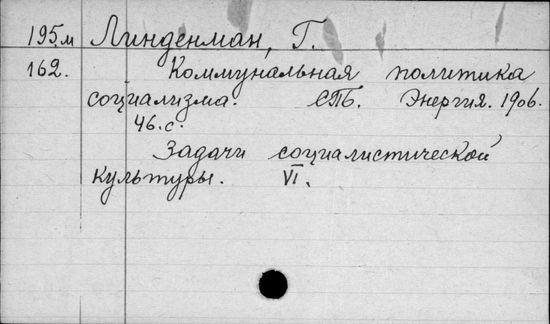 195м Линденман, Г.
162. Коммунальная политика
социализма. СПБ. Энергия. 1906.
46.с.
Задачи социалистической
культуры. VI.